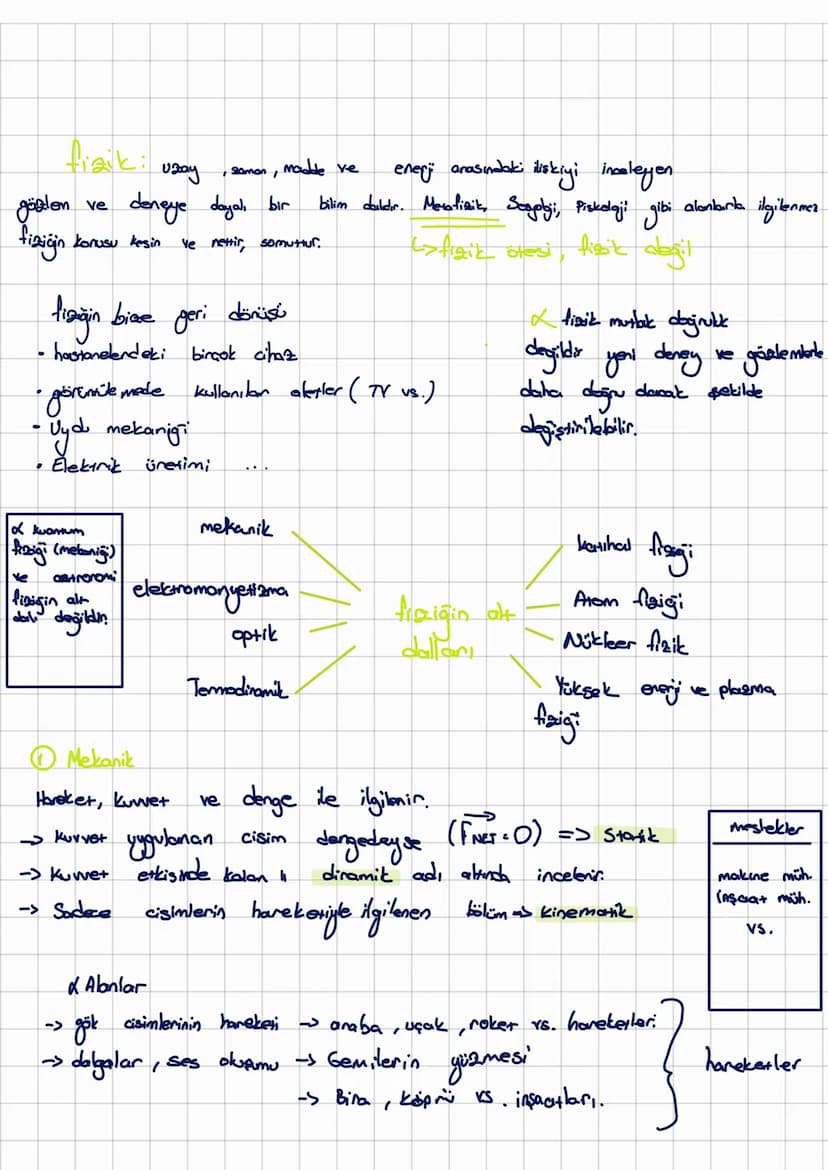 fizik: uzay , zaman , madde ve enerji arasındaki ilişkiyi inceleyen
gözlem ve deneye dayalı bir bilim dalıdır. Metafizik, Sosyoloji, Piskoloji gibi alanlarla ilgilenmez
fiziğin konusu kesin ve nettir, somuttur.
↳> fizik ötesi, fizik değil
fiziğin bize geri dönüşü
• hastanelerdeki birçok cihaz
• görüntülemede kullanılan aletler ( TV vs.)
- Uydu mekaniği
• Elektrik üretimi ...
α fizik mutlak doğruluk
değildir yeni deney ve gözlemlerle
daha doğru olacak şekilde
değiştirilebilir.
α kuantum
fiziği (mekaniği)
ve astronomi
fiziğin alt
dalı değildir.
mekanik
elektromanyetizma
optik
Termodinamik
fiziğin alt
dalları
katıhal fiziği
Atom fiziği
Nükleer fizik
Yüksek enerji ve plazma
fiziği
① Mekanik
Hareket, kuvvet ve denge ile ilgilenir.
-> kuvvet uygulanan cisim dengedeyse (F⃗NET = 0) => Statik
-> Kuvvet etkisinde kalan ıı dinamik adı altında incelenir.
-> Sadece cisimlerin hareketiyle ilgilenen bölüm => kinematik
meslekler
makine müh.
inşaat müh.
vs.
α Alanlar
-> gök cisimlerinin hareketi -> araba , uçak , roket vs. hareketleri
-> dalgalar , ses oluşumu -> Gemilerin yüzmesi
-> Bina , köprü vs . inşaatları.
hareketler